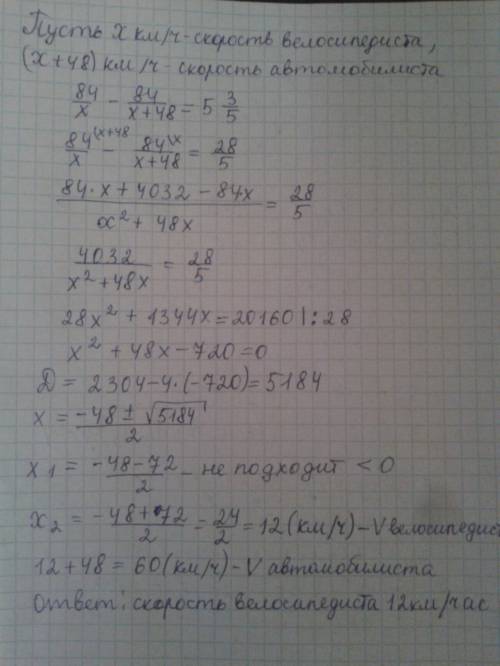 Пусть х км/ч - скорость велосипедиста,
(х+48) км/ч - скорость автомобилиста
84/x - 84/(x+48) = 5 3/5
84/x (x+48 - 84/(x+48) (x = 28/5
(84·x + 4032 - 84x)/(x² + 48x) = 28/5
4032/(x² + 48x) = 28/5
28x² + 1344x = 20160 |: 28
x² + 48x - 720 = 0
Д = 2304 - 4·(-720) = 5184
x = (-48 ± √5184)/2
x₁ = (-48 - 72)/2 - не подходит < 0
x₂ = (-48 + 72)/2 = 24/2 = 12 (км/ч) - V велосипедист
12 + 48 = 60 (км/ч) - V автомобилиста
Ответ: скорость велосипедиста 12 км/час